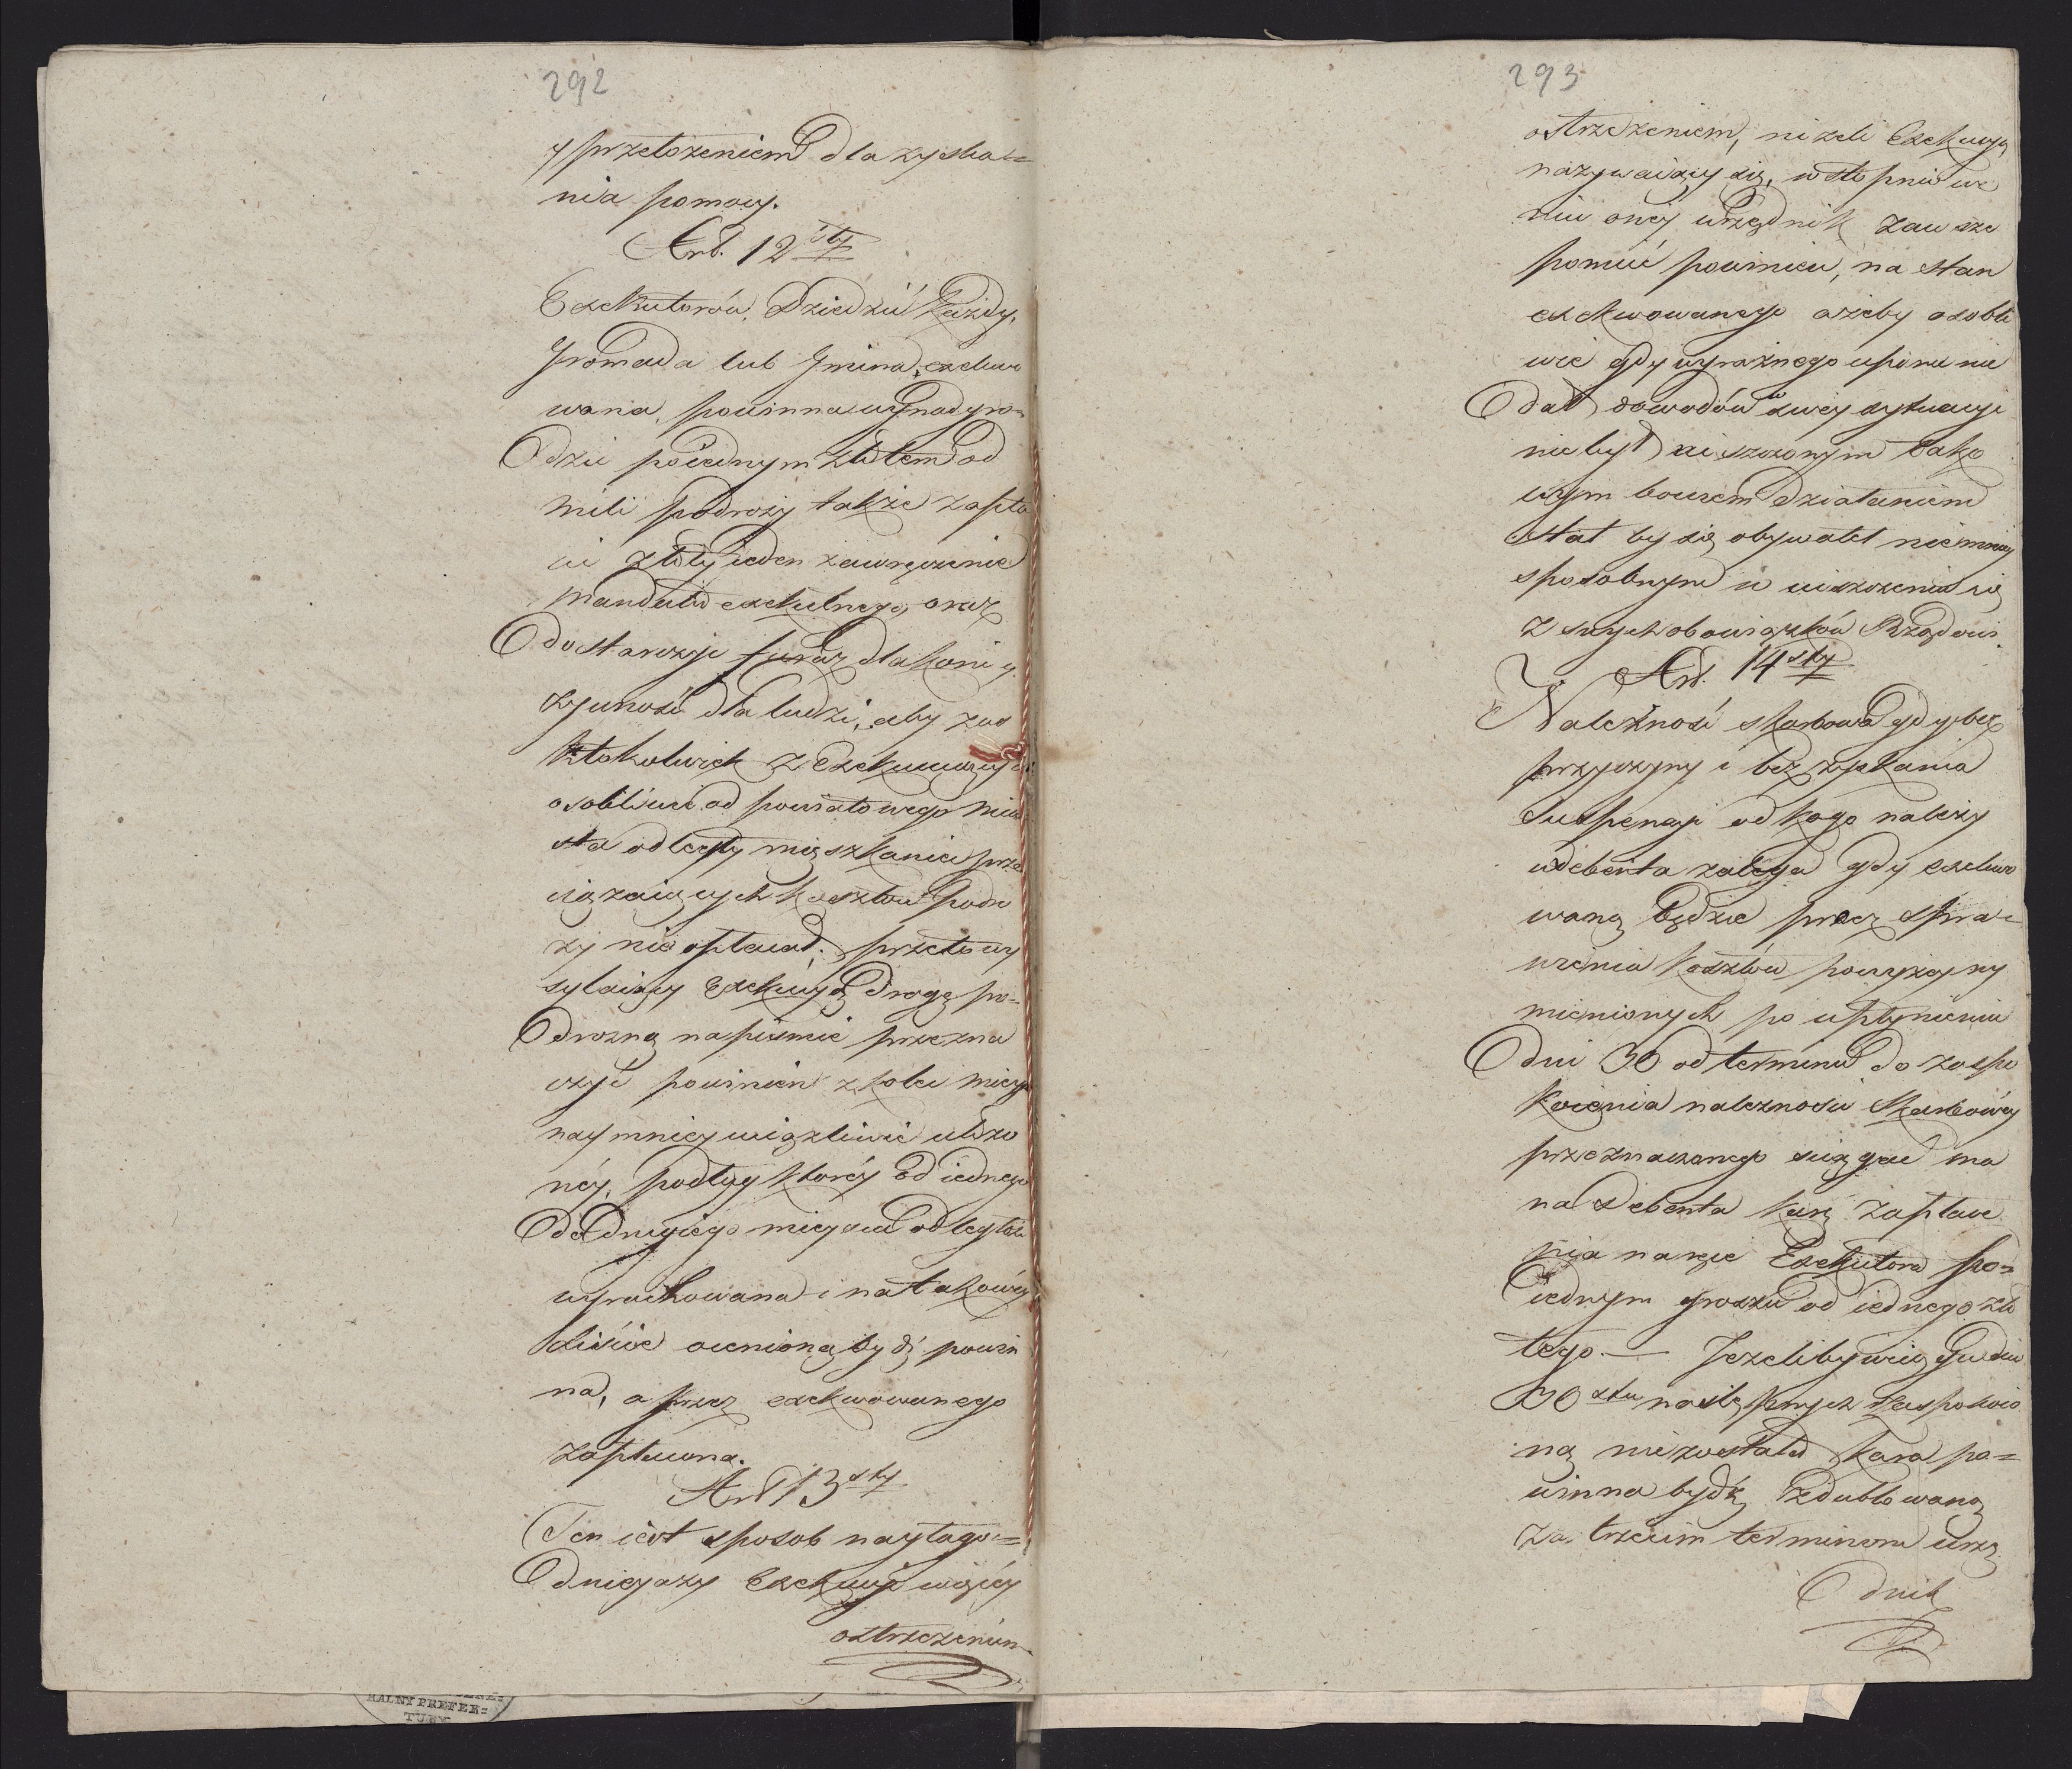 292
y przełożeniem dla zyska=
nia pomocy.
Art. 12sty
Exekutorów, Dziedzic każdy,
Gromada lub Gmina, exekwo
wana, powinna wynadgro=
dzić po iednym złotem od
mili podroży także zapła
ci złoty ieden za wręczenie
Mandatu exekutnego, oraz
dostarczyć furaż dla koni y
żywność dla ludzi, aby zaś
ktokolwiek z Exekwuiących
osobliwie od powiatowego mia
sta odległy mięszkaniec prze
ciązaiących kosztów podro
ży nie opłacał; przeto wy
syłaiący Exekucyą drogę po=
drożną na piśmie przezna
czyć powinien z kolei mieysc
naymniey uciążliwie ułożo
néy, podług któréy od iednego
do drugiego mieysca odległość
wyrachowana i na takowéy
liście ocenioną bydź powin
na, a przez exekwowanego
zapłacona.
Art 13sty
Ten iest sposob nayłago=
dnieyszy Exekucyi więcéy
ostrzeżeniem
RALNY PREFEK=
TURY
293
ostrzeżeniem, niżeli Exekucyą
nazywaiący się, w stopniowa
niu onéy urzędnik zawsze
pomnić powinien, na stan
exekwowanego ażeby osobli
wie gdy wyraźnego uporu nie
dał dowodów w swéy sytuacyi
nie był niszczonym tako
wym bowiem działaniem
stał by się obywatel niemniéy
sposobnym w uiszczeniu się
z swych obowiązków Rządowi.
Art. 14sty
Należność skarbowa gdy bez
przyczyny i bez zyskania
Suspensyi od kogo należy
u debenta zalega gdy exekwo
waną będzie prócz spra=
wienia kosztów powyżey wy
mienionych po upłynieniu
dni 30 od terminu do zaspo
koienia należności Skarbowéy
przeznaczonego ściągać ma
na Debenta karę zapłace
nia na rzecz Exekutora po=
iednym groszu od iednego zło
tego. — Jeżeliby więc y w dni
30stu następnych zaspokoio
ną nie została kara po=
winna bydź zdublowaną
za trzecim terminem urzę
dnik